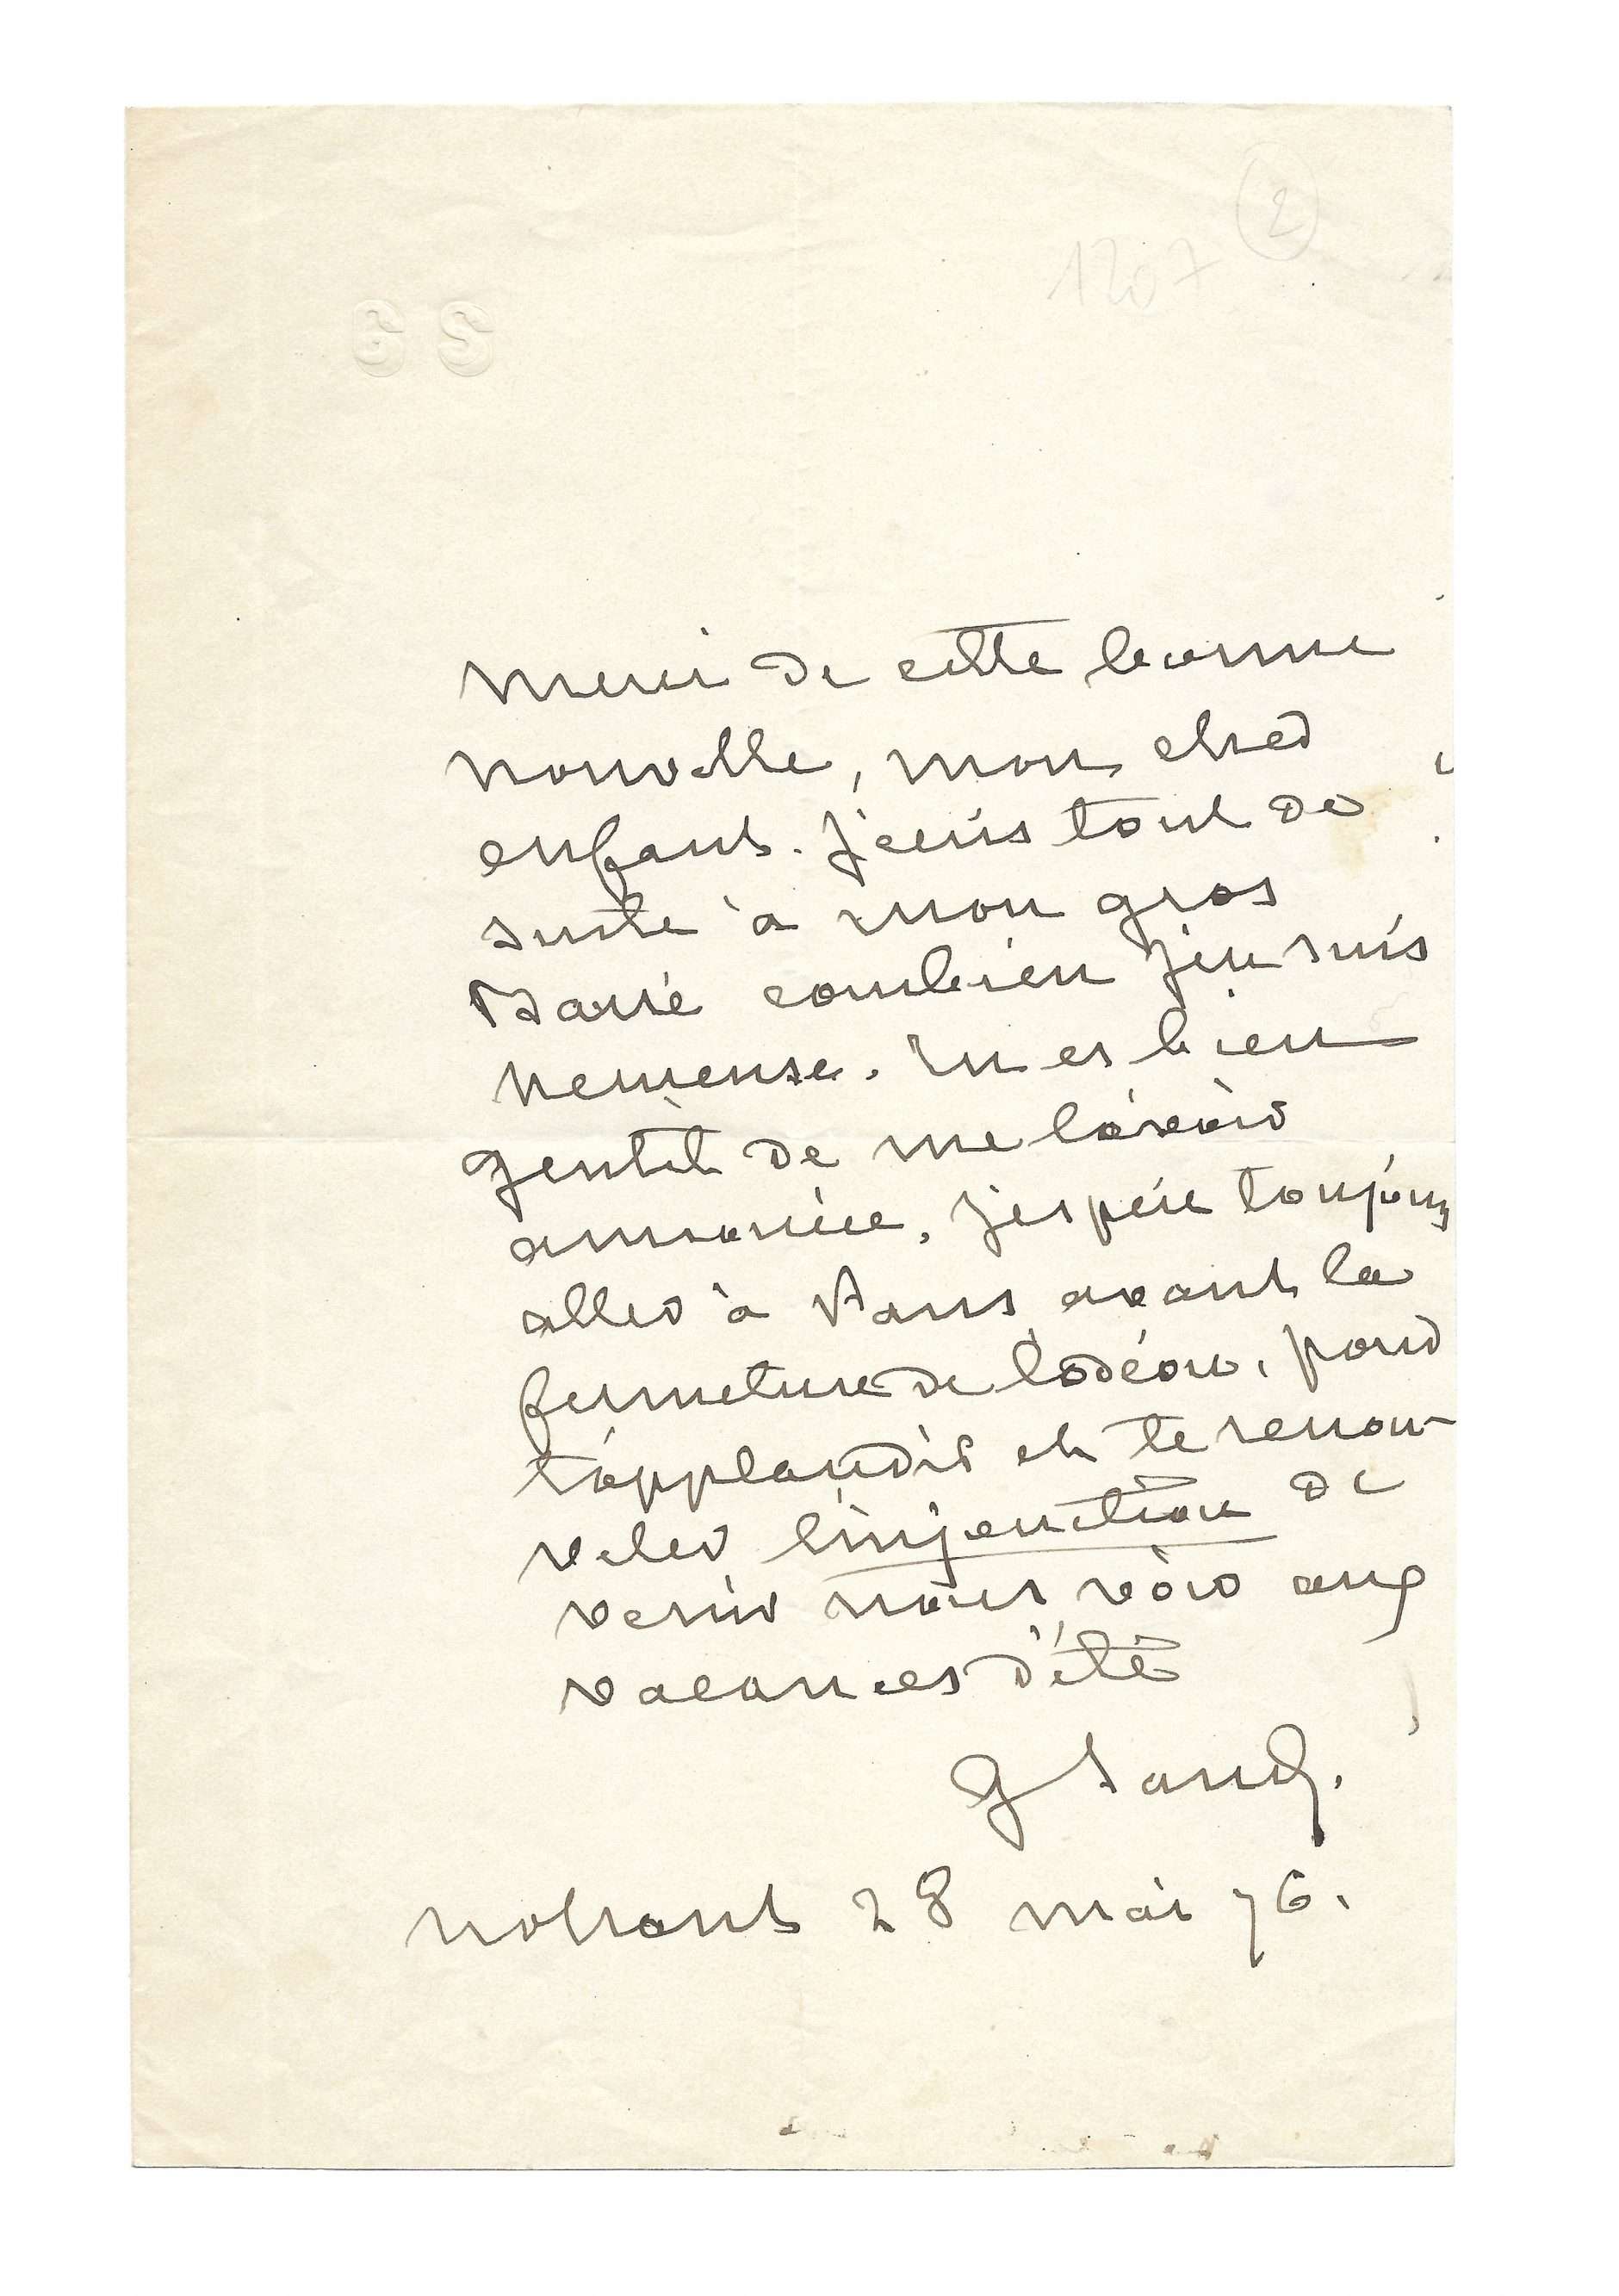 2
1207
GS
Merci de cette bonne
nouvelle, mon cher
enfant. J'écris tout de
suite à mon gros
combien j'en suis
heureuse. Tu es bien
gentil de me l'avoir
annoncée. J'espère toujours
aller à Paris avant la
fermeture de l'odéon, pour
t'applaudir et te renou-
veler l'injonction de
venir nous voir aux
vacances d'été
G Sand.
Nohant 28 mai 76.